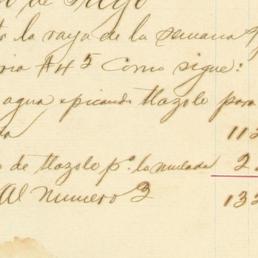 o de Trigo
la raya de la semana
#45 Como sigue:
agua y picando tlazole para
112
de tlazole pa. la mulada 2
Al Numero 3 132